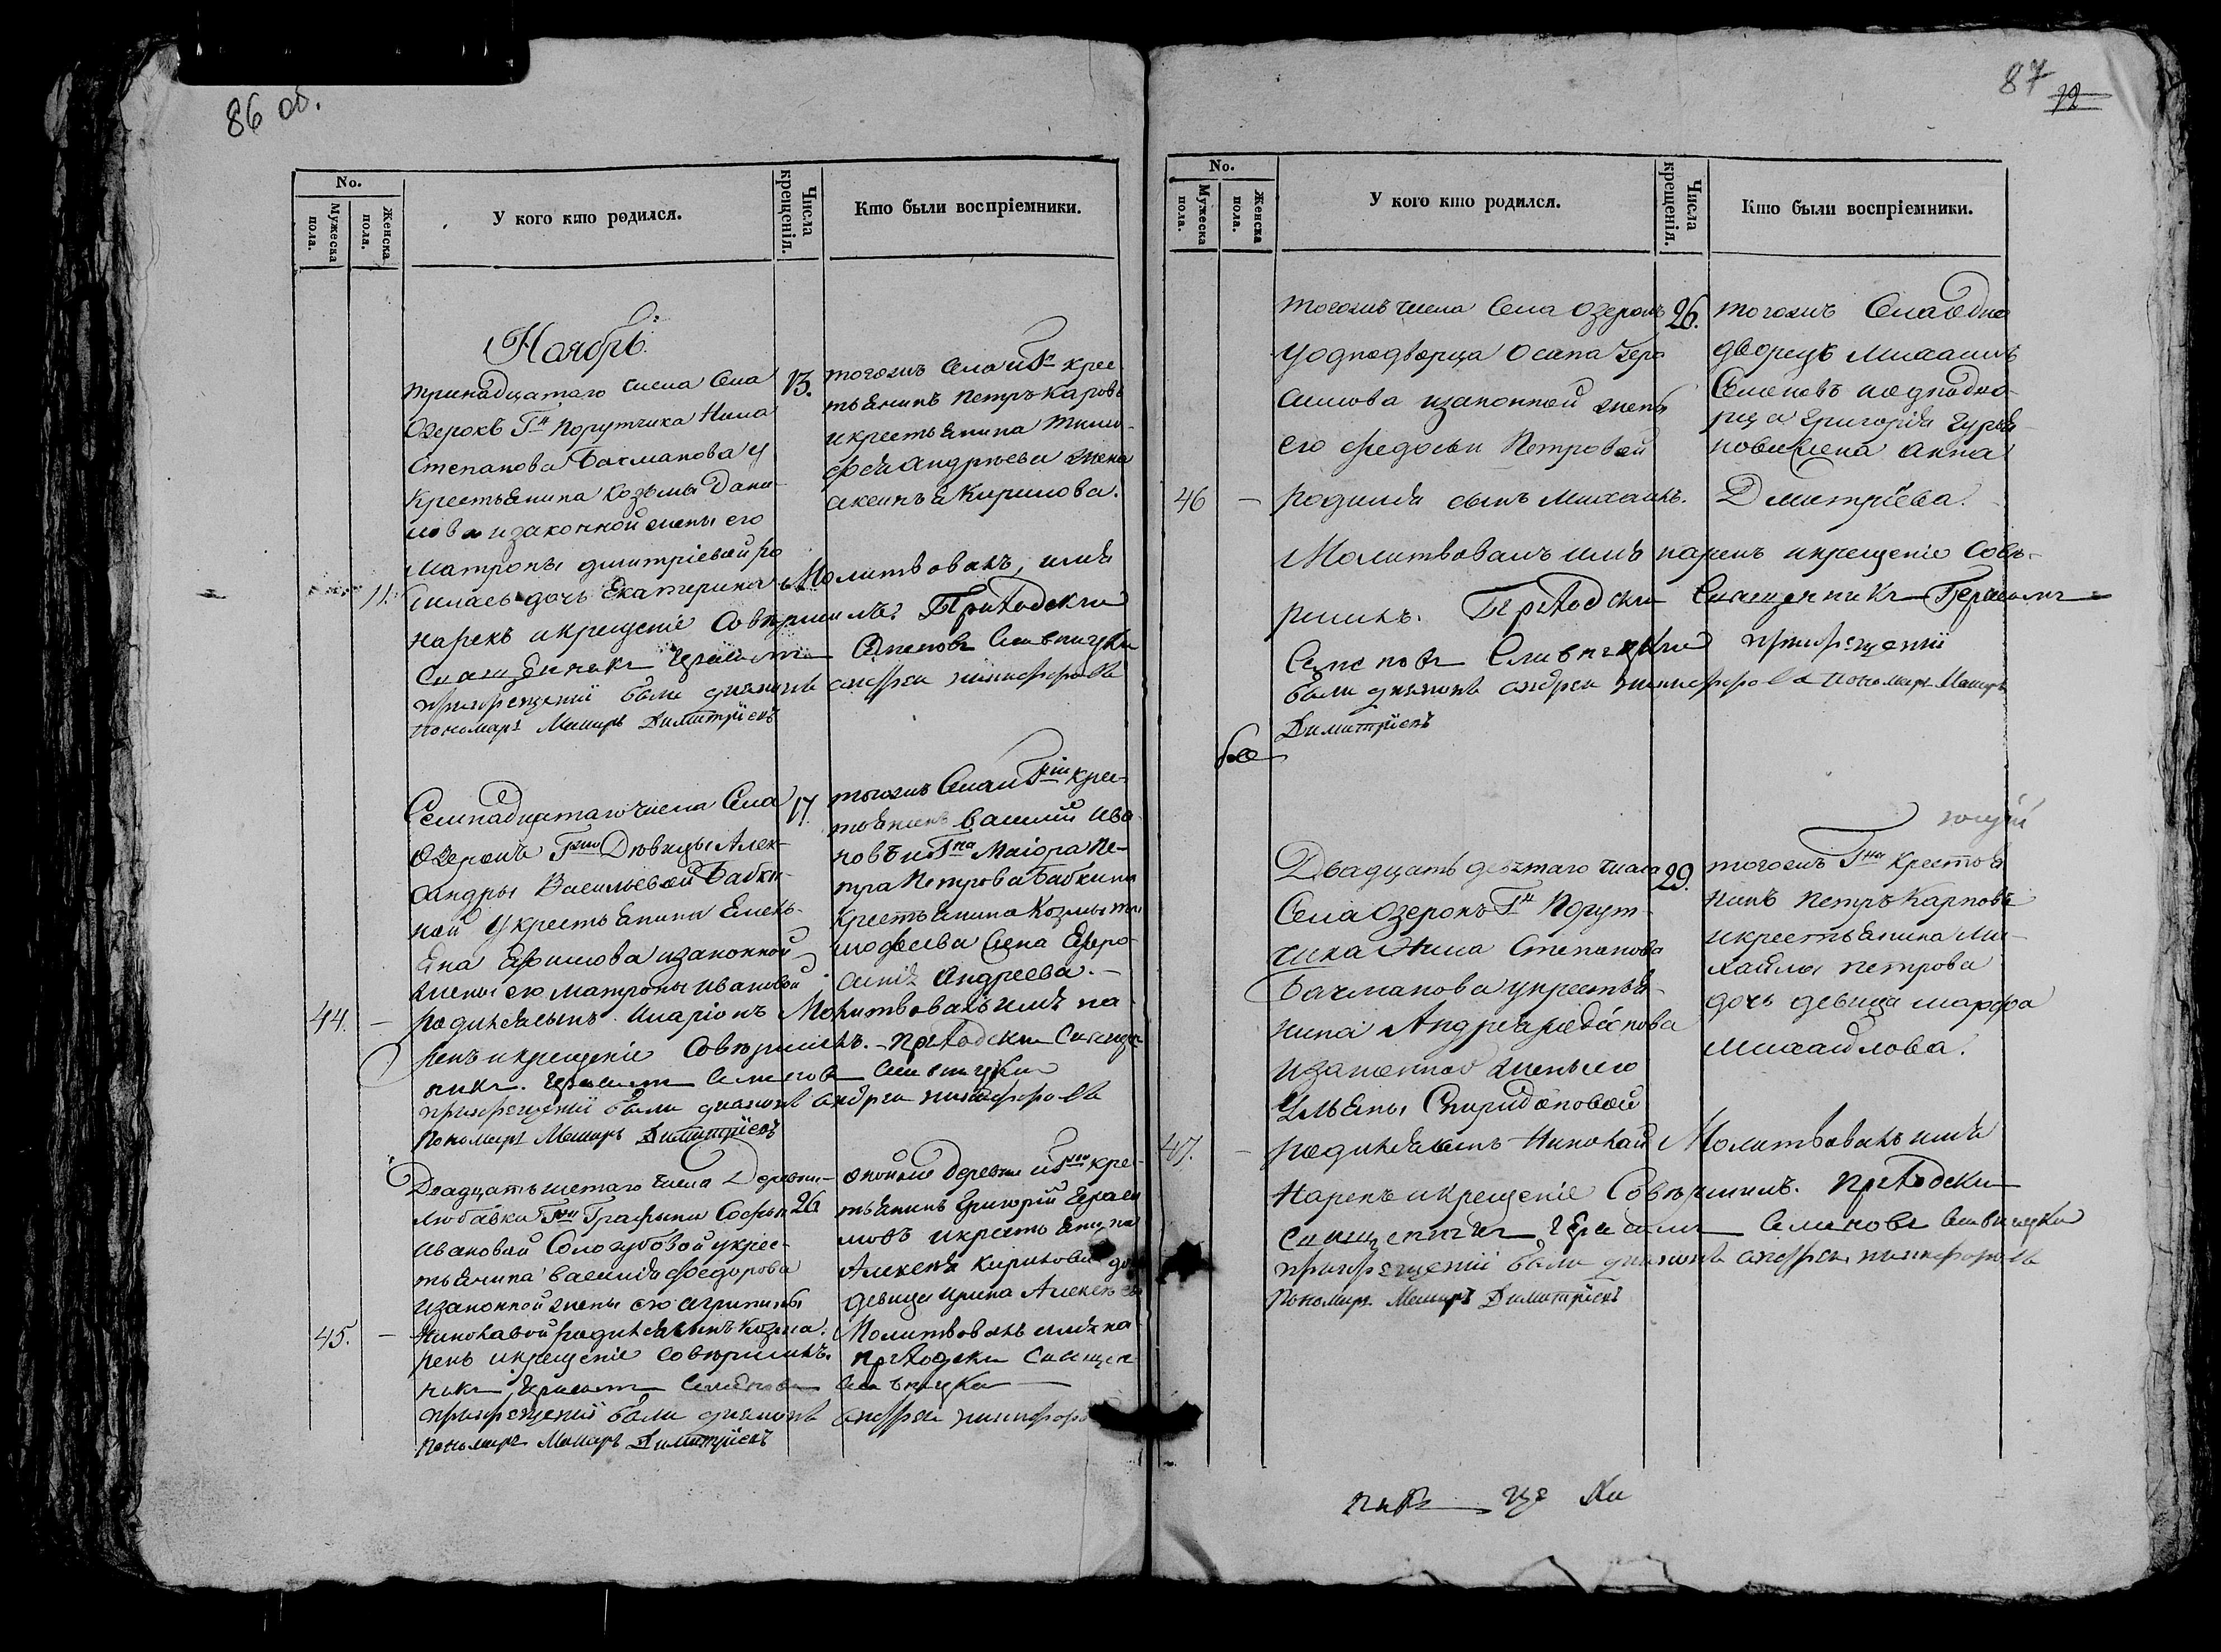 86 об.
No.
Мужеска пола.
Женска пола.
У кого кто родился.
Числа крещенія.
Кто были воспріемники.
Ноябрь.
тринадцатаго числа Села
Озерокъ Гна Порутчика Нила
Степанова Бачманова у
крестьянина Козьмы Дани
лова изаконной жены его
Матроны дмитріевой ро
11.
дилась дочь Екатерина Молитвовалъ, имя
нарекъ икрещеніе Совершилъ: Приходски
Священникъ Герасим Семеновъ Сливицки
прикрещеніи были диаконъ андреи никифоровъ
пономарь Мамиръ Димитріевъ
13.
тогожъ Села и Гна крес
тьянинъ Петръ Карповъ
икрестьянина тимо
фея андреева жена
аксинья Кирилова.
Семнадцатаго числа Села
Озерокъ Гжи Дѣвицы Алек-
сандры Васильевой Бабки-
ной Укрестьянина Емель-
яна Ефимова изаконной
жены его Матроны Ивановой
44. –
родился сынъ Иларіонъ Молитвовалъ имя на
рекъ икрещеніе Совершилъ. – приходски Священ
никъ. Герасим Семенов Сливицки
прикрещеніи были диаконъ андреи никифоровъ
пономарь Мамиръ Димитріевъ
17.
тогожъ Села и Гжи крес
тьянинъ Василий Ива
новъ и Гна Маіора Пе-
тра Петрова Бабкина
крестьянина Козмы ти
мофеева жена Ефро-
синія Андреева. –
Двадцать шестаго числа Деревни
Любавки Гжи Графини Софьи
Ивановой Сологубовой укрес-
тьянина василия Федорова
изаконной жены его агрипины
45. –
Николавой родился сынъ Козма. Молитвовалъ имя на
рекъ икрещеніе совершилъ. приходски Священ
никъ Герасим Семенов Сливицки
прикрещеніи были диаконъ андреи никифоро
пономарь Мамиръ Димитріевъ
26
оной же деревни и Гжи кре-
тьянинъ Григорий Гераси
мовъ икрестьянина
Алексея Кирилова до
девица ирина Алексеева
87
72
No.
Мужеска пола.
Женска пола.
У кого кто родился.
Числа крещенія.
Кто были воспріемники.
тогожъ числа Села Озерокъ
уоднодворца Осипа Гера
симова изаконной жены
его федосьи Петровой
46 –
родился сынъ Михаилъ.
26.
тогожъ Села Одно
дворецъ Михаилъ
Семеновъ и однодво-
рца Григорія Гурья
нова жена анна
Дмитріева.
Молитвовалъ имя нарекъ икрещеніе Сове-
ршилъ. Приходски Священникъ Герасимъ
Семенов Сливицки прикрещеніи
были диаконъ андреи никифоровъ пономарь Мамиръ
Димитріевъ
Двадцать девятаго числа
Села Озерокъ Гна Порут-
чика Нила Степанова
Бачманова укрестья-
нина Андрея радіонова
изаконной жены его
Ульяны Спиридоновой
47. –
родился сынъ Николай Молитвовалъ имя
Нарекъ икрещеніе Совершилъ. приходски
священникъ Герасимъ Семеновъ Сливицки
прикрещеніи были диаконъ андреи никифоровъ
пономарь Мамиръ Димитріевъ
29.
тогожъ Гна крестья
нинъ Петръ Карповъ
икрестьянина Ми-
хайлы петрова
дочь девица марфа
михаилова.